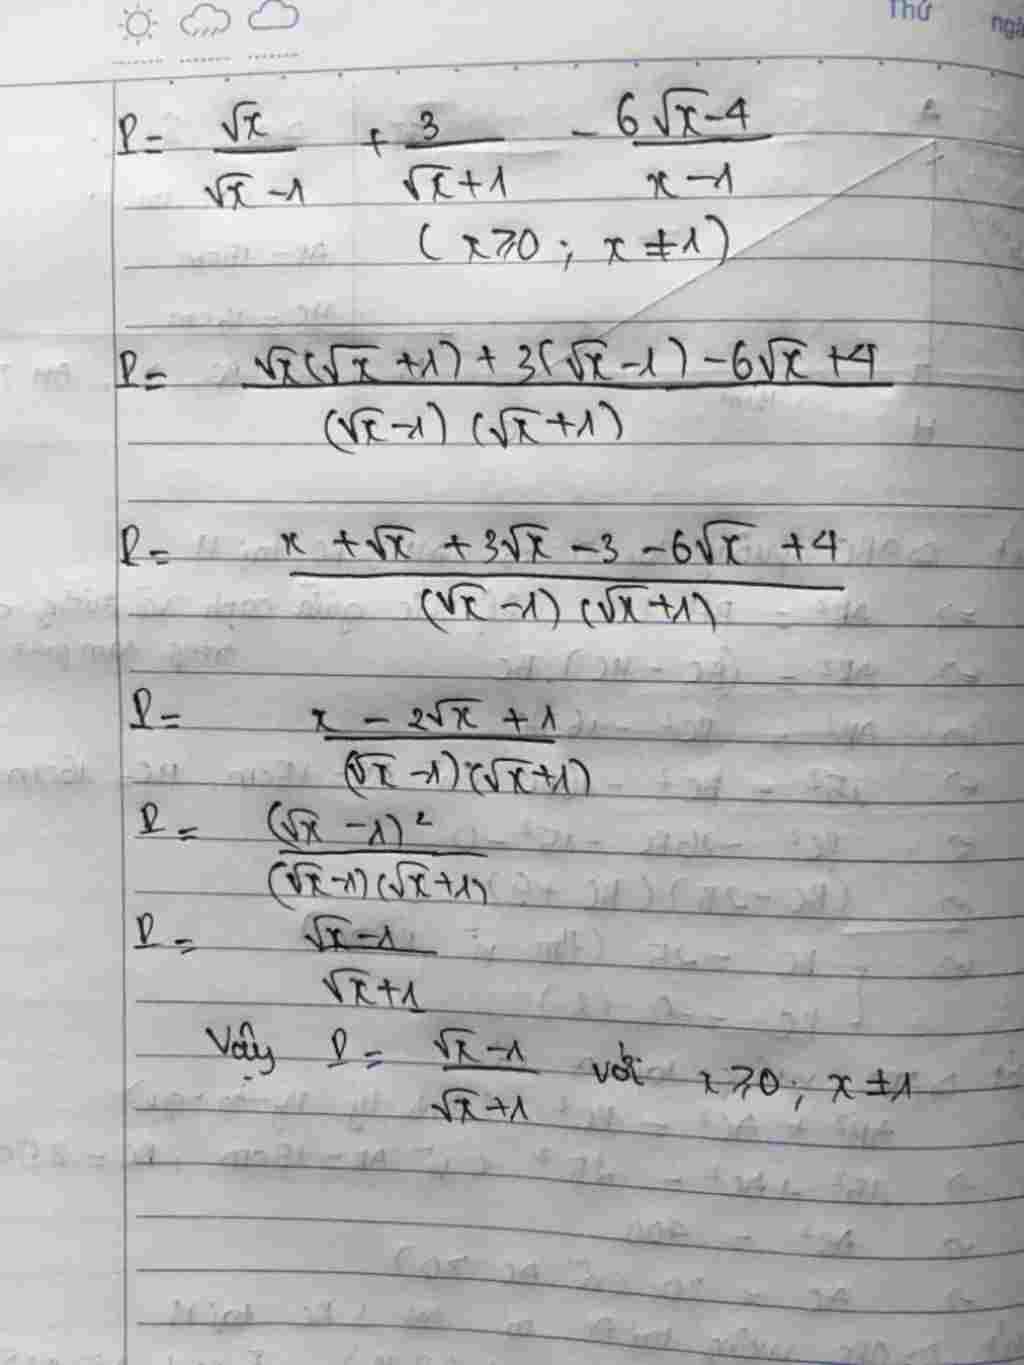 Thứ
P = √x / (√x - 1) + 3 / (√x + 1) - (6√x - 4) / (x - 1)
(x ≥ 0 ; x ≠ 1)
P = (√x(√x + 1) + 3(√x - 1) - 6√x + 4) / ((√x - 1)(√x + 1))
P = (x + √x + 3√x - 3 - 6√x + 4) / ((√x - 1)(√x + 1))
P = (x - 2√x + 1) / ((√x - 1)(√x + 1))
P = (√x - 1)² / ((√x - 1)(√x + 1))
P = (√x - 1) / (√x + 1)
Vậy P = (√x - 1) / (√x + 1) với x ≥ 0 ; x ≠ 1